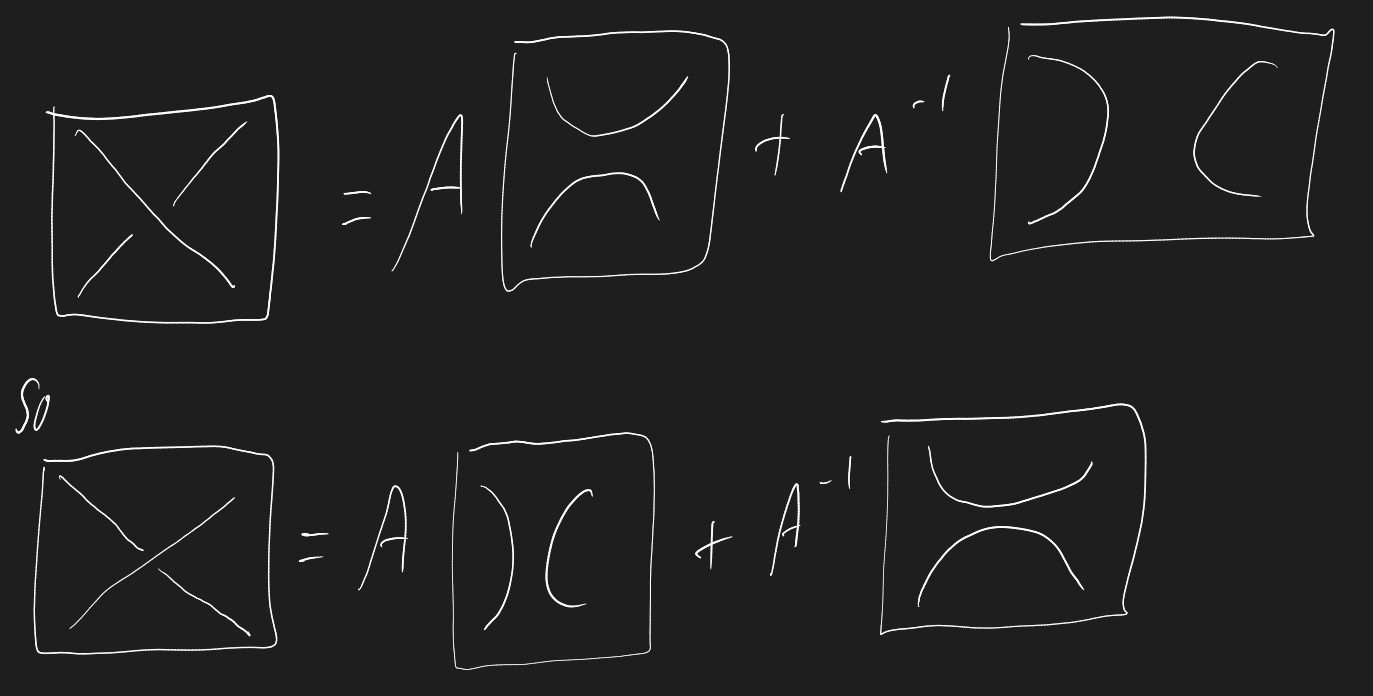 = A + A⁻¹
So
= A + A⁻¹